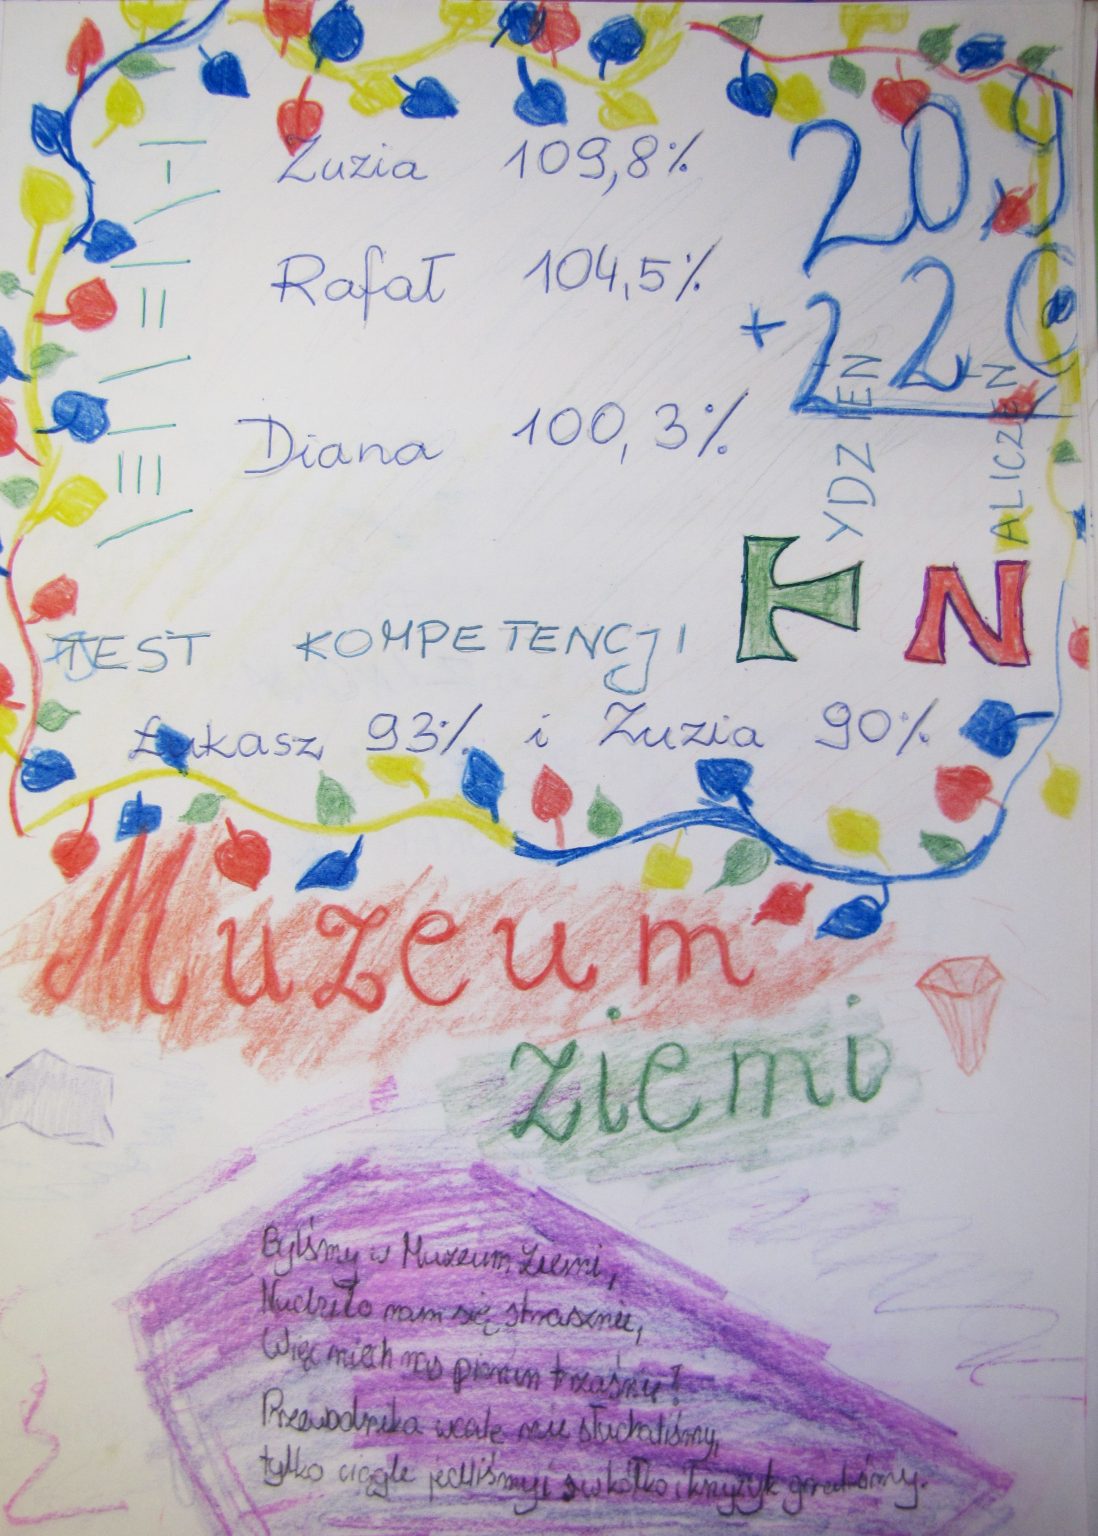 I Zuzia 109,8%
II Rafał 104,5%
III Diana 100,3%
20,9
+ 220
TYDZIEŃ
NALICZEŃ
TEST KOMPETENCJI
Łukasz 93% i Zuzia 90%
Muzeum
ziemi
Byliśmy w Muzeum Ziemi,
Nudziło nam się strasznie,
Więc niech nas piorun trzaśnie!
Przewodnika wcale nie słuchaliśmy,
tylko ciągle jedliśmy i w kółko i krzyżyk graliśmy.